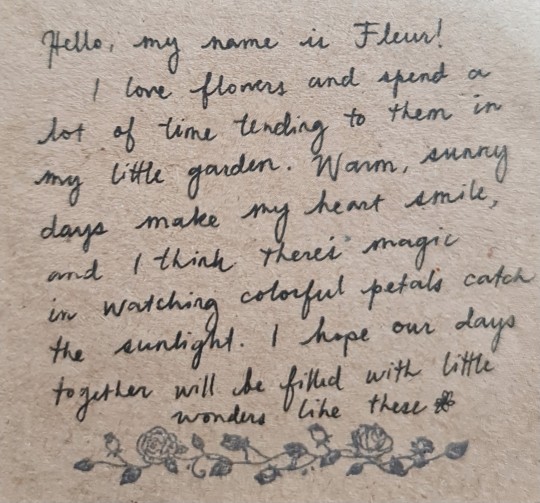 Hello, my name is Fleur!
I love flowers and spend a
lot of time tending to them in
my little garden. Warm, sunny
days make my heart smile,
and I think there's magic
in watching colorful petals catch
the sunlight. I hope our days
together will be filled with little
wonders like these